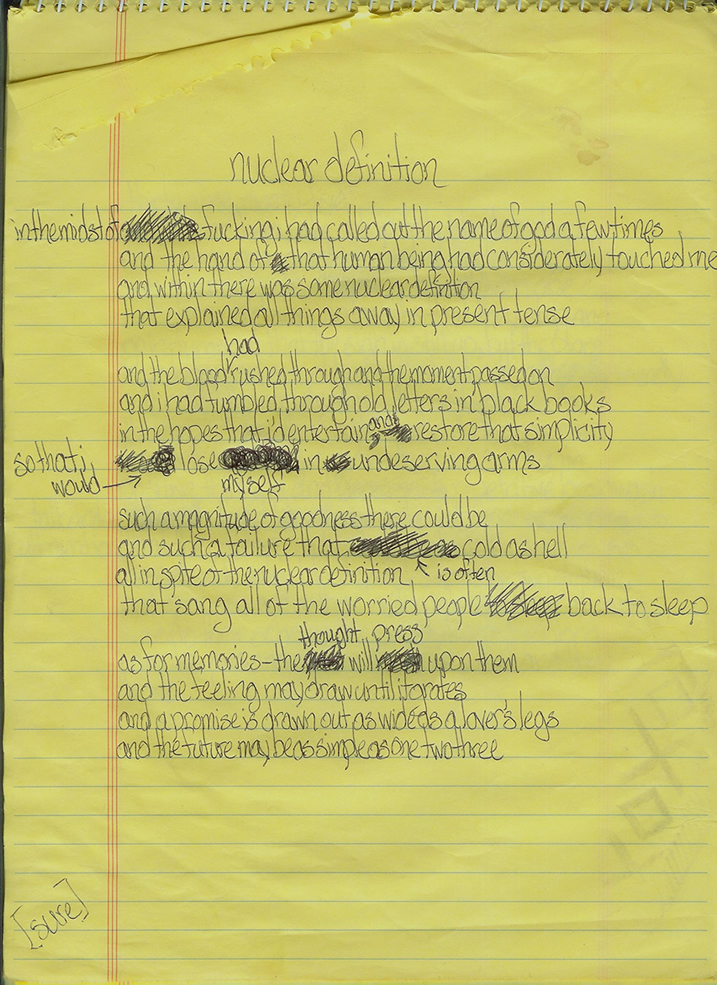 nuclear definition
in the midst of fucking i had called out the name of god a few times
and the hand of that human being had considerately touched me
and within there was some nuclear definition
that explained all things away in present tense
had
and the blood rushed through and the moment passed on
and i had tumbled through old letters in black books
and
in the hopes that i'd entertain, restore that simplicity
so that i
would
lose in undeserving arms
myself
such a magnitude of goodness there could be
and such a failure that cold as hell
all in spite of the nuclear definition is often
that sang all of the worried people back to sleep
thought press
as for memories - the will upon them
and the feeling may draw until it grates
and a promise is drawn out as wide as a lover's legs
and the future may be as simple as one two three
[sure]